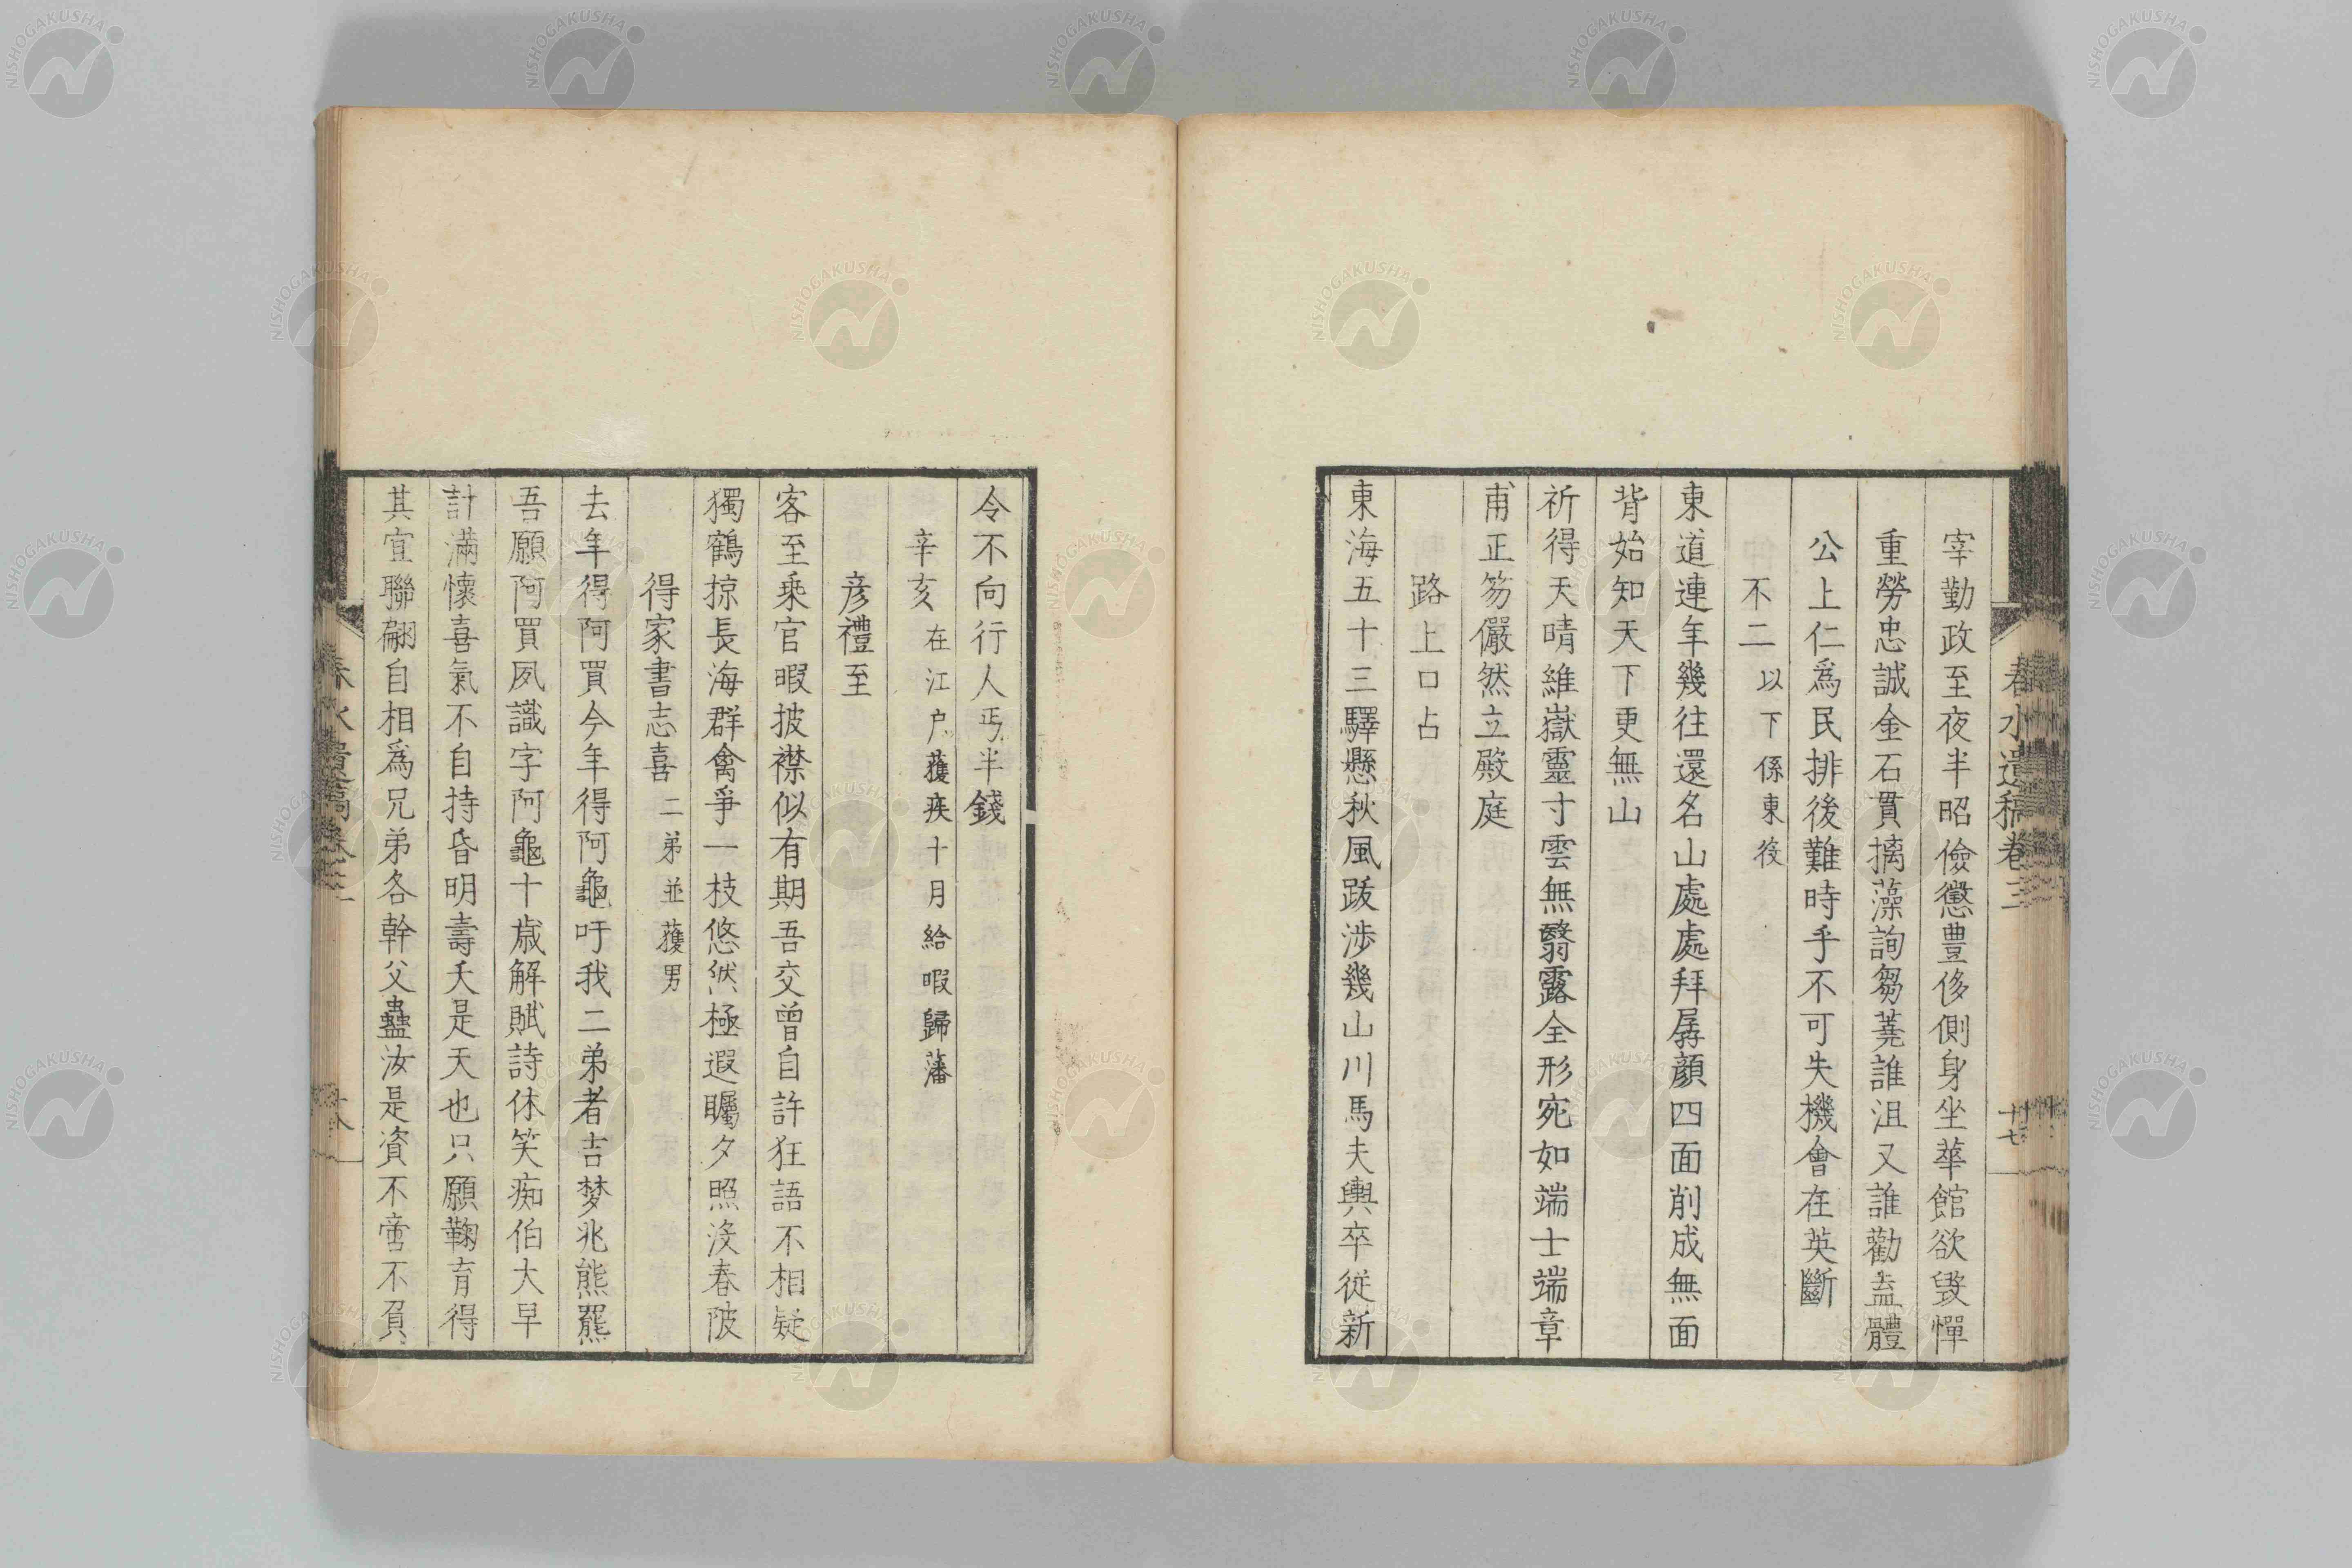 春水遺稿卷三
十七
宰勤政至夜半昭儉懲豊侈側身坐華館欲毀憚
重勞忠誠金石貫摛藻詢芻蕘誰沮又誰勸盍體
公上仁爲民排後難時手不可失機會在英斷
不二 以下係東役
東道連年幾往還名山處處拜孱顔四面削成無面
背始知天下更無山
祈得天晴維嶽靈寸雲無翳露全形宛如端士端章
甫正笏儼然立殿庭
路上口占
東海五十三驛懸秋風跋涉幾山川馬夫輿卒從新
令不向行人丐半錢
辛亥 在江户獲疾十月給暇歸藩
彦禮至
客至乘官暇披襟似有期吾交曾自許狂語不相疑
獨鶴掠長海群禽爭一枝悠然極遐矚夕照沒春陂
得家書志喜 二弟並獲男
去年得阿買今年得阿龜吁我二弟者吉梦兆熊羆
吾願阿買夙識字阿龜十歳解賦詩休笑痴伯大早
計滿懷喜氣不自持昏明壽夭是天也只願鞠育得
其宜聯翩自相爲兄弟各幹父蠱汝是資不啻不負
春水遺稿卷三
十八
NISHOGAKUSHA